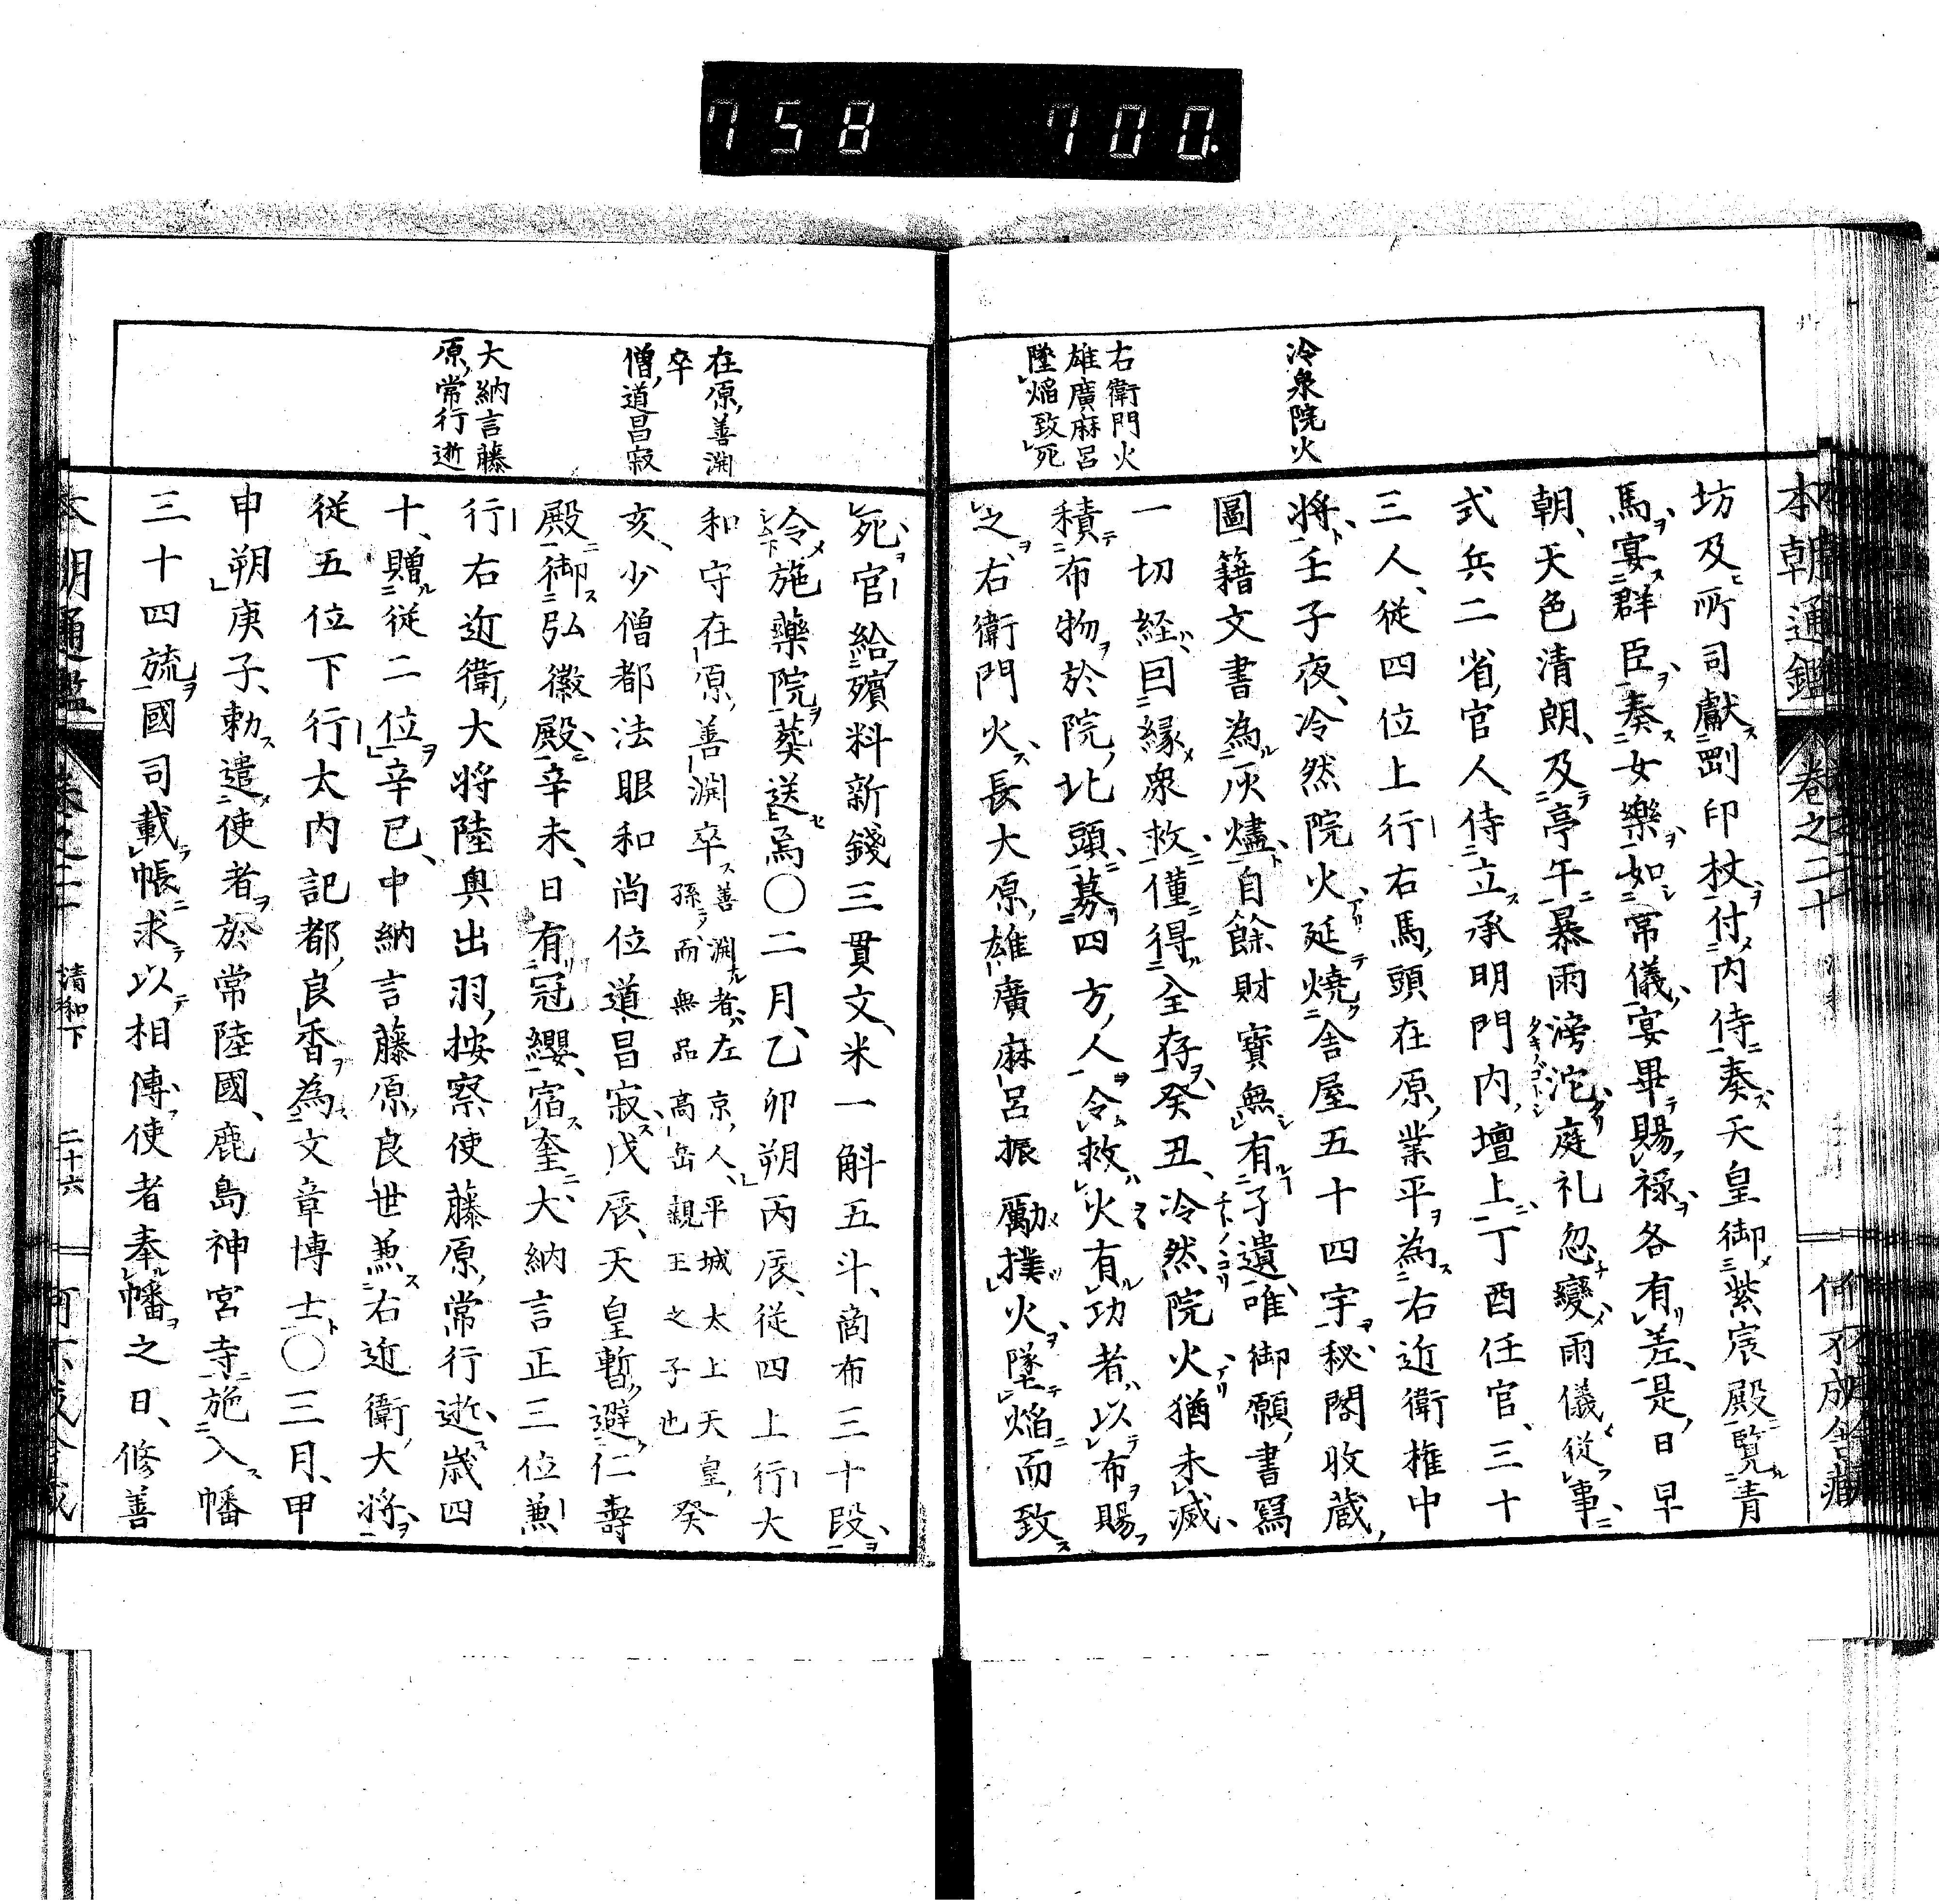 758 700.
本朝通鑑 卷之二十
冷泉院火
右衛門火
雄廣麻呂
墜焔致死
坊及所司獻剛印杖付内侍奏天皇御紫宸殿覽青
馬宴群臣奏女樂如常儀宴畢賜禄各有差是日早
朝天色清朗及亭午暴雨滂沱庭礼忽變雨儀従事
式兵二省官人侍立承明門内壇上丁酉任官三十
三人従四位上行右馬頭在原業平為右近衛権中
将壬子夜冷然院火延燒舎屋五十四宇秘閣收蔵
圖籍文書為灰燼自餘財寳無有孑遺唯御願書冩
一切経囙縁衆救僅得全存癸丑冷然院火猶未滅
積布物於院北頭募四方人令救火有功者以布賜
之右衛門火長大原雄廣麻呂振勵撲火墜焔而致
在原善淵
卒
僧道昌寂
大納言藤
原常行逝
死官給殯料新錢三貫文米一斛五斗商布三十段
令施藥院葬送焉〇二月乙卯朔丙辰従四上行大
和守在原善淵卒善淵者左京人平城太上天皇
孫而無品高岳親王之子也癸
亥少僧都法眼和尚位道昌寂戊辰天皇暫避仁壽
殿御弘徽殿辛未日有冠纓宿奎大納言正三位兼
行右近衛大将陸奥出羽按察使藤原常行逝歳四
十贈従二位辛巳中納言藤原良世兼右近衛大将
従五位下行大内記都良香為文章博士〇三月甲
申朔庚子勅遣使者於常陸國鹿島神宮寺施入幡
三十四旒國司載帳求以相傳使者奉幡之日修善
清和下 二十六